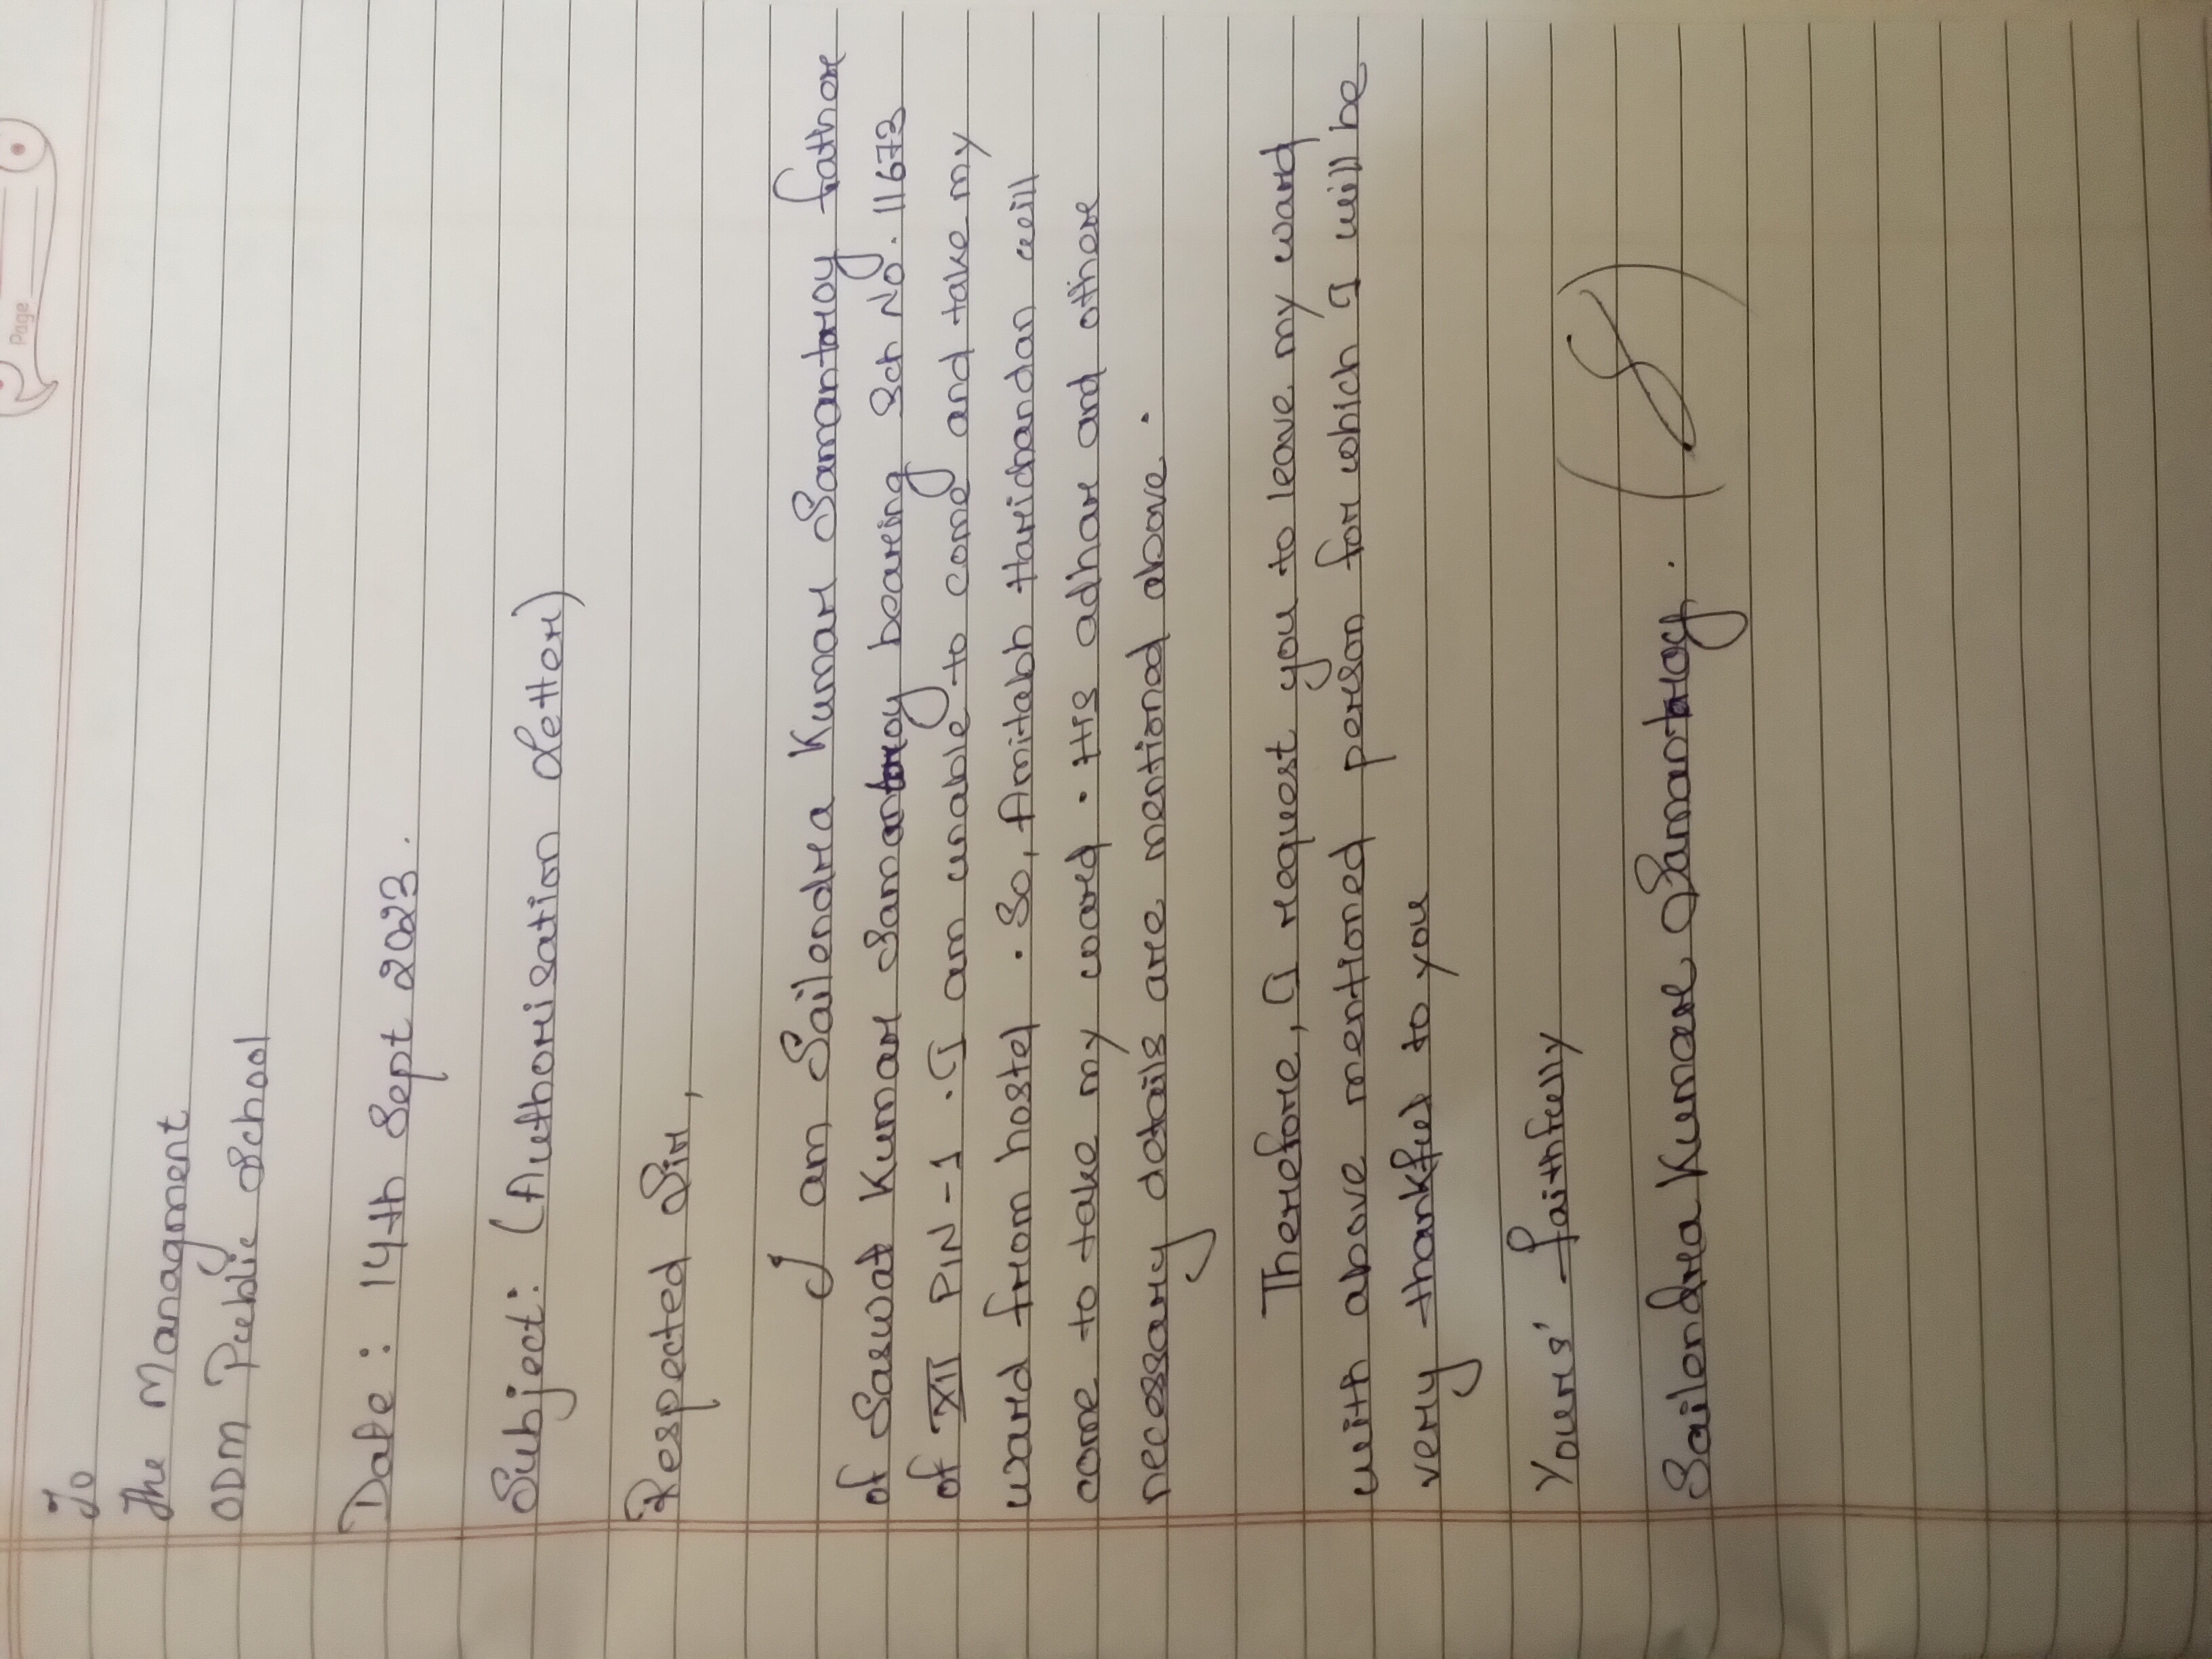 Page
To
The Managment
ODM Public School
Date: 14th Sept 2023.
Subject: (Authorisation Letter)
Respected Sir,
I am Sailendra Kumar Samantroy father
of Saswat Kumar Samantroy bearing Sch No. 11673
of XII PIN-1. I am unable to come and take my
ward from hostel. So, Amitabh Harichandan will
come to take my ward. His adhar and other
necessary details are mentioned above.
Therefore, I request you to leave my ward
with above mentioned person for which I will be
very thankful to you
Yours' faithfully
Sailendra Kumar Samantroy.